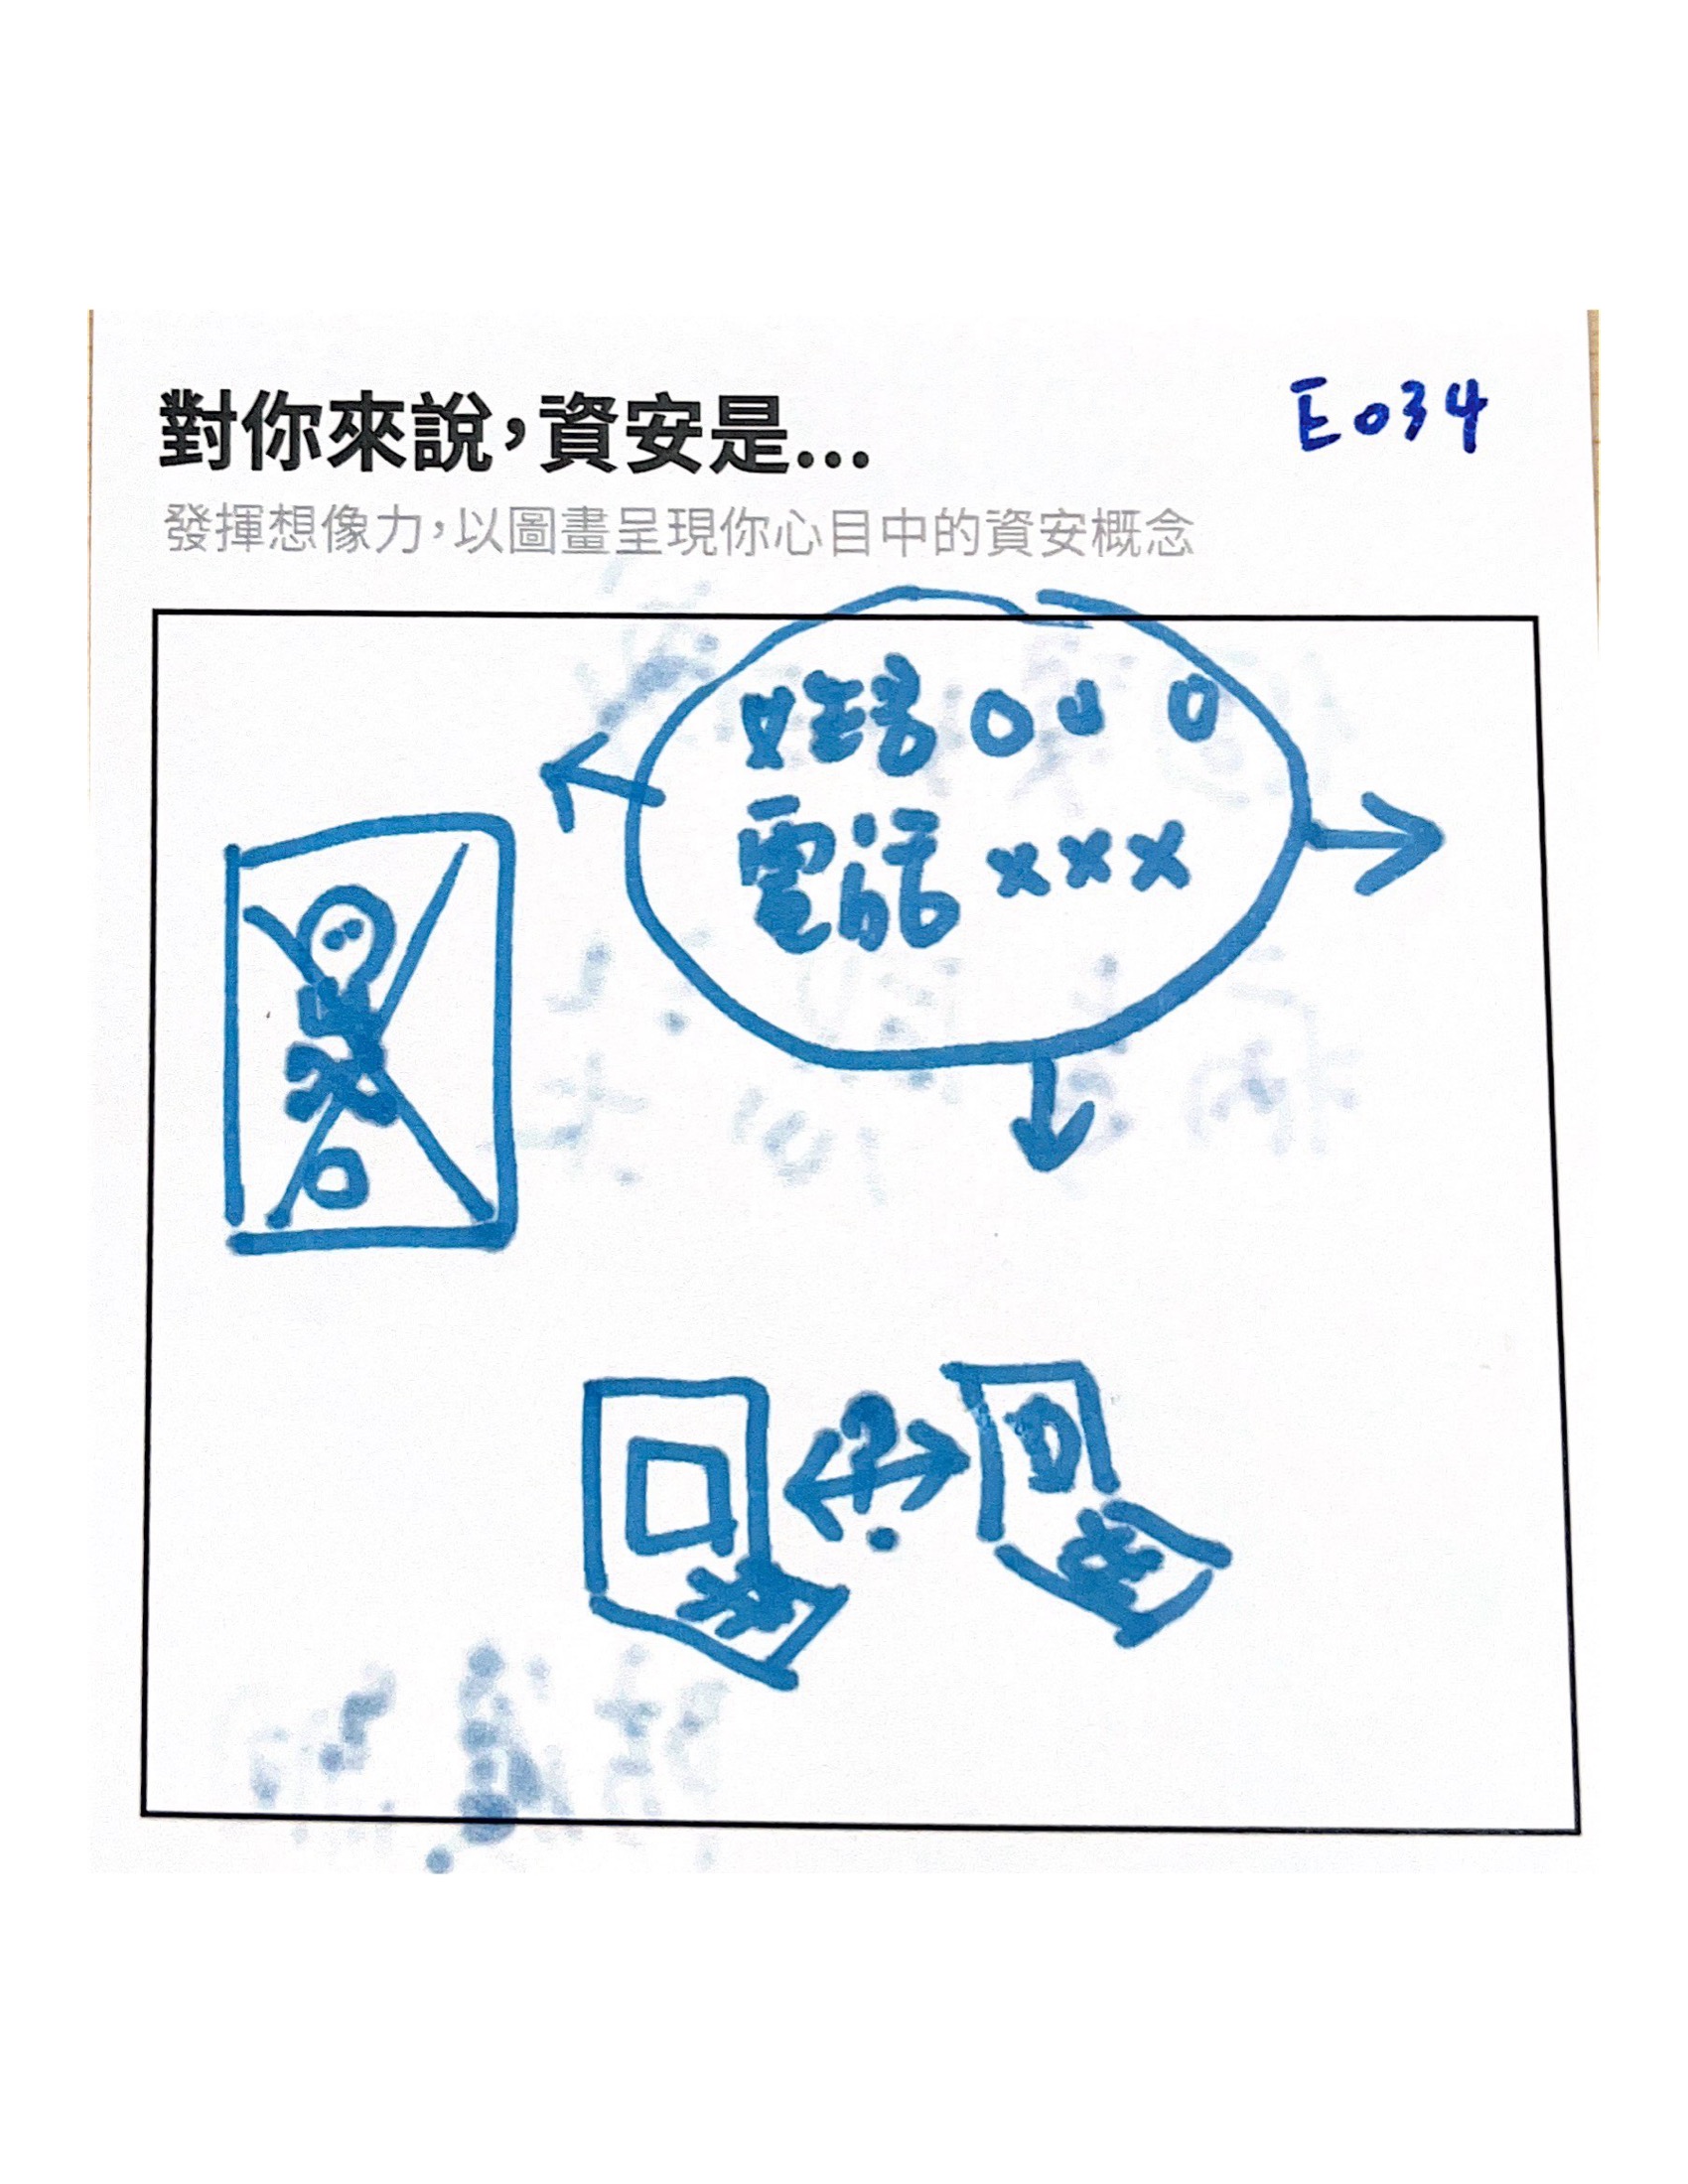 對你來說，資安是...
E034
發揮想像力，以圖畫呈現你心目中的資安概念
姓名 O O O
電話 XXX
?